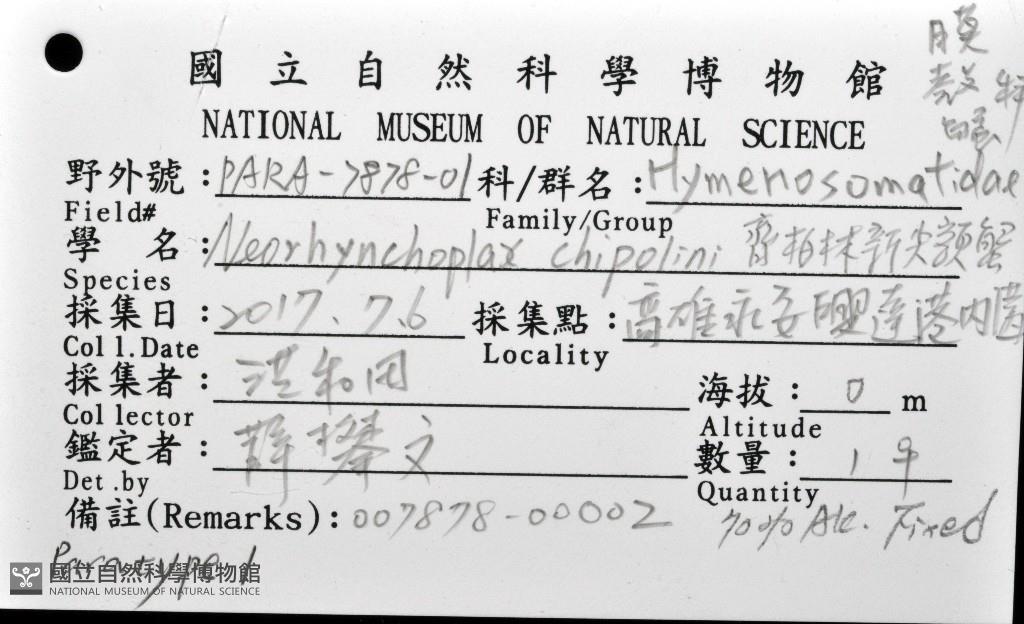 膜殼科蟹
國立自然科學博物館
NATIONAL MUSEUM OF NATURAL SCIENCE
野外號：PARA-7878-01 科/群名：Hymenosomatidae
Field# Family/Group
學名：Neorhynchoplax chipolini 齊柏林新尖額蟹
Species
採集日：2017.7.6 採集點：高雄永安興達港內
Coll.Date Locality
採集者：洪和田 海拔：0 m
Collector Altitude
鑑定者：薛攀文 數量：1 ♀
Det.by Quantity
備註(Remarks)：007878-00002 70% Alc. Fixed
Paratype 1
國立自然科學博物館
NATIONAL MUSEUM OF NATURAL SCIENCE